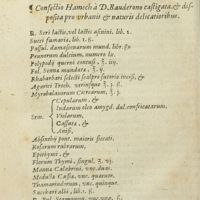 ¶ Confectio Hamech à D. Rauderono castigata, & dis-
posita pro urbanis & naturis delicatioribus.
℞. Seri lactis, vel lactis asinini, lib. 1.
Succi fumariæ, lib. 1. ß.
Passul. damascenarum mund. lib. ß
Prunorum dulcium, numero lx.
Polypodij querni contusi, ℥. iij.
Fol. Senna mundata, ℥.
Rhabarbari selecti scalpro sutorio incisi, &
Agarici Troch. verinsque ℥. 1. ß.
Myrobalanorum Citrearum, ℥. j.
Cepularum, &
Indarum oleo amygd. dul. confricatarum.
Sem. Violarum,
Cassuta, &
Anisi,
Absinthij pont. maioris siccati,
Rosarum rubrarum,
Epithymi, &
Florum Thymi, singul. ℥. ij.
Manna Calabrini, vnc. duas.
Medulla Casia, vnc. quatuor,
Thamarindorum, vnc. quinque:
Sacchari albi, lib. 1. ß.